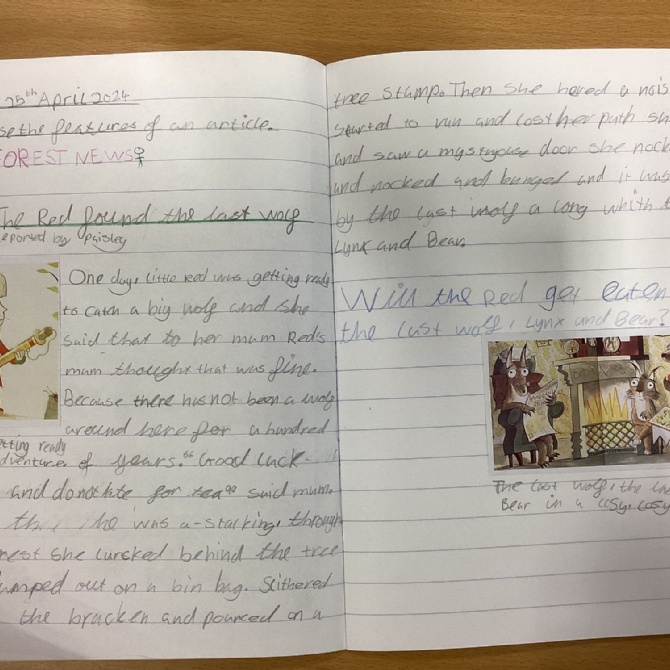 25th April 2024
se the features of an article.
OREST NEWS
The Red found the last wolf
eported by Paisley
One day, little Red was getting ready
to catch a big wolf and she
said that to her mum Red's
mum thought that was fine.
Because there has not been a wolf
around here for a hundred
of years. "Good luck
tting ready
dventure.
and do not late for tea" said mum.
he was a-stacking, through
rest she lurcked behind the tree
umped out on a bin bag. Slithered
the bracken and pounced on a
tree stump. Then she hered a nois
started to run and lost her path sh
and saw a mysteyouse door she nock
and nocked and bunged and it was
by the last wolf a long whith t
Lynx and Bear.
Will the Red get eaten
the last wolf, Lynx and Bear?
The last wolf, the la
Bear in a cosy, cosy